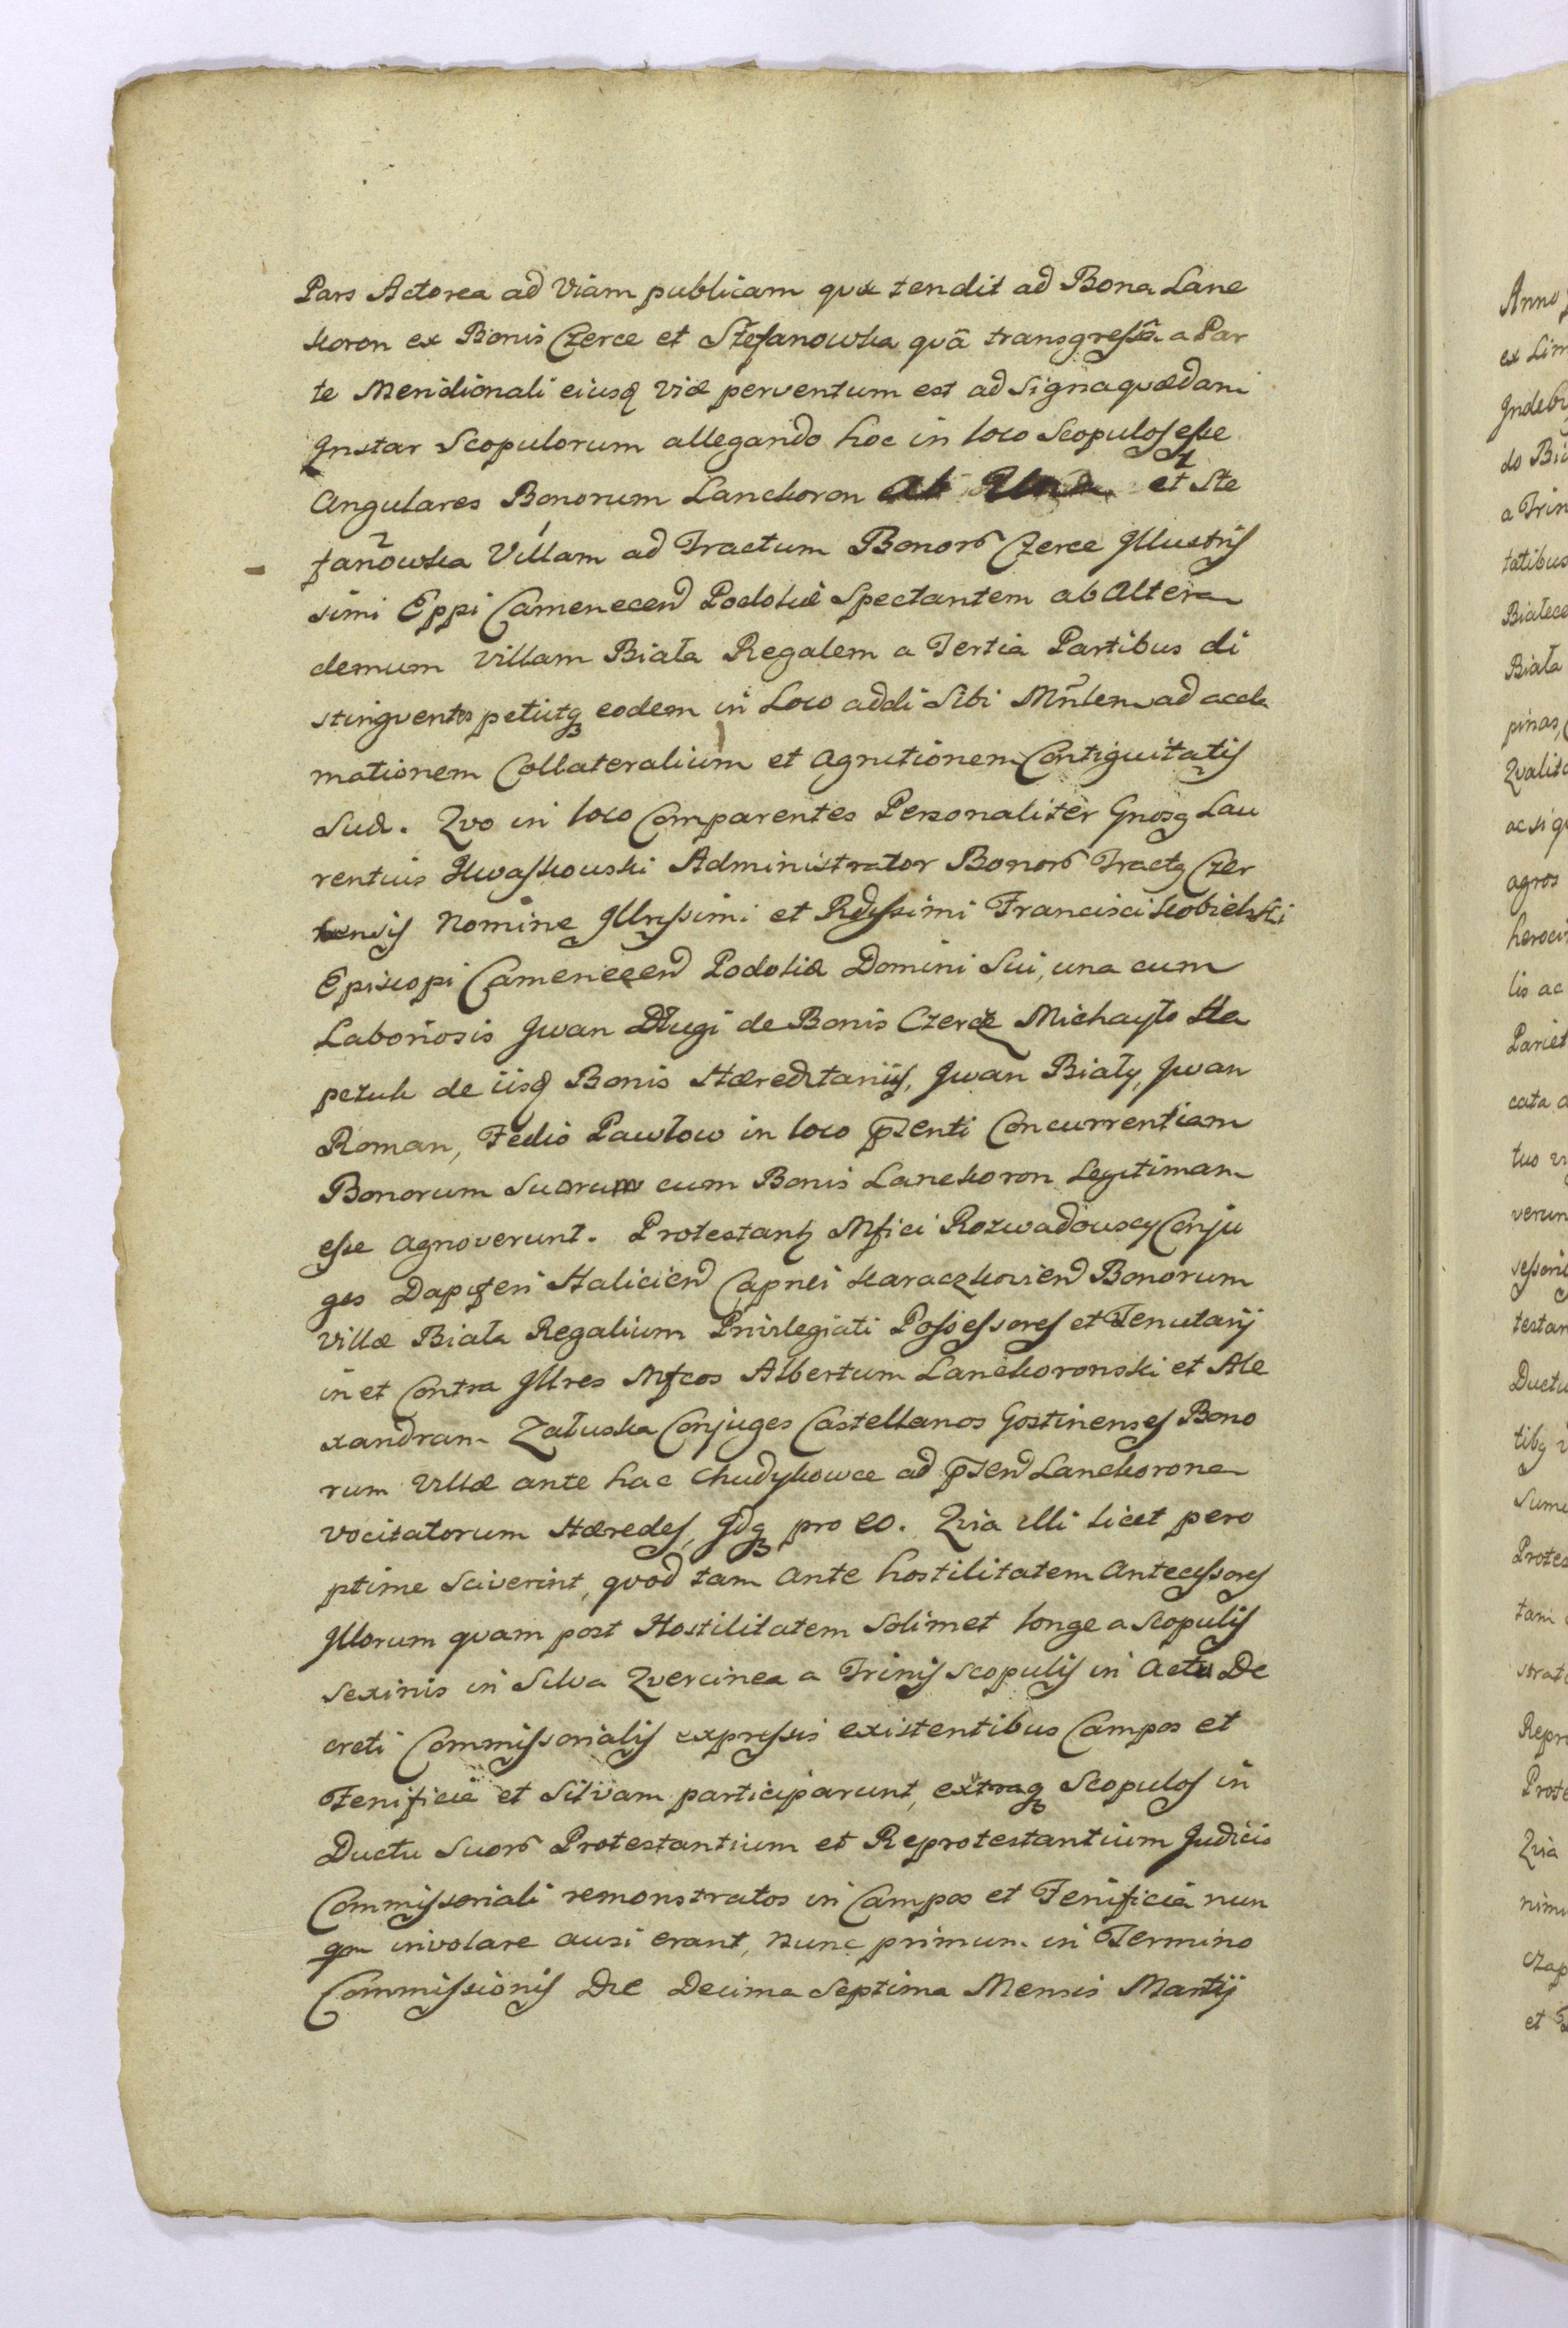 Pars Actorea ad Viam publicam quæ tendit ad Bona Lanc
koron ex Bonis Czerce et Stefanowka quâ transgressâ a Par
te Meridionali eiusq viæ perventum est ad signa quædam
Instar Scopulorum allegando hoc in loco Scopulos esse
Angulares Bonorum Lanckoron et Ste
fanowka Villam ad Tractum Bonor Czerce Illustris
simi Eppi Camenecen Podoliæ Spectantem ab Altera
demum Villam Biała Regalem a Tertia Partibus di
stinguentes petiitq eodem in Loco addi Sibi Mnlem ad accla
mationem Collateralium et Agnitionem Contiguitatis
Suæ. Quo in loco Comparentes Personaliter Gnosq Lau
rentius Kwaskowski Administrator Bonor Tractq Czer
censis Nomine Illrissimi et Rdissimi Francisci Kobielski
Episcopi Camenecen Podoliæ Domini Sui, una cum
Laboriosis Iwan Długi de Bonis Czerce Michayło Ha
petuk de iisq Bonis Hæreditariis, Iwan Biały, Iwan
Roman, Fedio Pawłow in loco pzenti Concurrentiam
Bonorum Suorum cum Bonis Lanckoron Legitimam
esse agnoverunt. Protestantq Mfici Rozwadowscy Conju
ges Dapiferi Halicien Capnei Karaczkovien Bonorum
Villæ Biała Regalium Privilegiati Possessores et Tenutarij
in et Contra Illres Mfcos Albertum Lanckoronski et Ale
xandram Załuska Conjuges Castellanos Gostinenses Bono
rum Villæ ante hac Chudykowce ad pzen Lanckorona
vocitatorum Hæredes, Idq pro eo. Quia illi licet pero
ptime Sciverint, quod tam ante hostilitatem Antecessores
Illorum quam post Hostilitatem Solimet longe a Scopulis
sexinis in Silva Quercinea a Trinis Scopulis in Actu De
creti Commissorialis expressis existentibus Campos et
Fenificia et Silvam participarunt, extraq Scopulos in
Ductu Suor Protestantium et Reprotestantium Judicio
Commissoriali remonstratos in Campos et Fenificia nun
qm involare ausi erant, nunc primum in Termino
Commissionis Die Decima Septima Mensis Martij